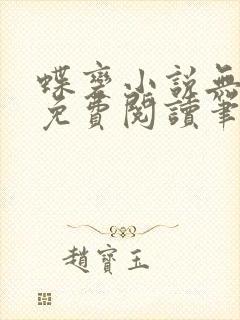 蝶变小説無
免費閱讀筆
趙寶玉